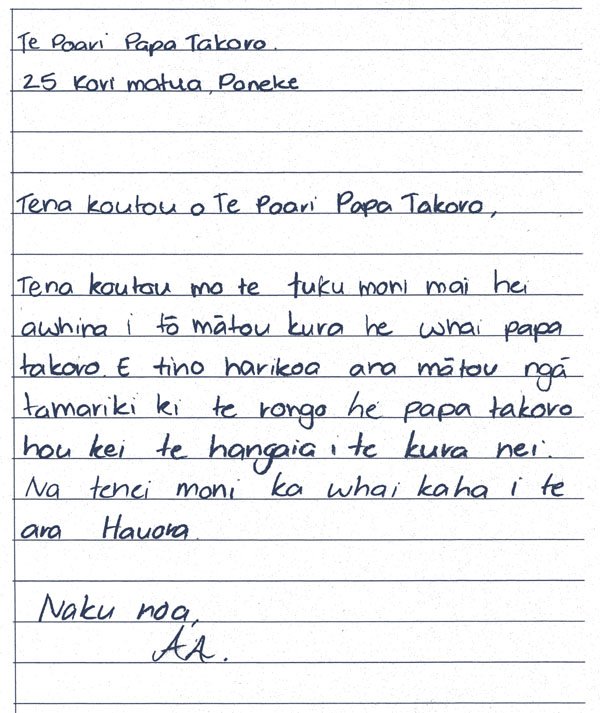 Te Poari Papa Takoro.
25 Kori matua, Poneke
Tena koutou o Te Poari Papa Takoro,
Tena koutou mo te tuku moni mai hei
awhina i tō mātou kura he whai papa
takoro. E tino harikoa ana mātou ngā
tamariki ki te rongo he papa takoro
hou kei te hangaia i te kura nei.
Na tenei moni ka whai kaha i te
ara Hauora.
Naku noa,
AA.